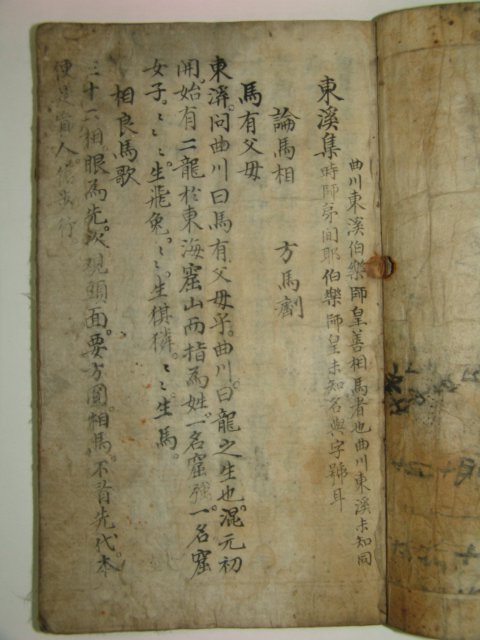 東溪集 曲川東溪伯樂師皇善相馬者也曲川東溪未知同
時師弟間耶伯樂師皇未知名與字號耳
論馬相 方馬劑
馬有父母
東溪問曲川曰馬有父母乎曲川曰龍之生也混元初
開始有二龍於東海窟山而指為姓一名窟強一名窟
女子〻〻生飛兔〻〻生騏驎〻〻生馬
相良馬歌
三十二相眼為先次觀頭面要方圓相馬不看先代本
便是 人 步行